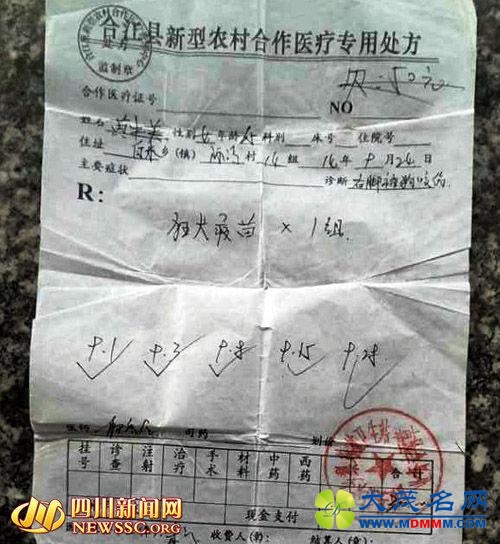 合江县新型农村合作医疗专用处方
处方
监制章
合作医疗证号
NO
姓名 性别 女 年龄 科别 床号 住院号
住址 乡(镇) 村 14 组 14 年 9 月 24 日
主要症状
诊断 右脚被狗咬伤
R:
狂犬疫苗 × 1组
9.1 9.3 9.8 9.15 9.24
医药 司药 划价
挂号 诊查 注射 治疗 手术 材料 中药 西药 合计
现金支付
收费人(章): 结算人(章):
四川新闻网
NEWSSC.ORG
大茂名网
WWW.MDMMM.COM